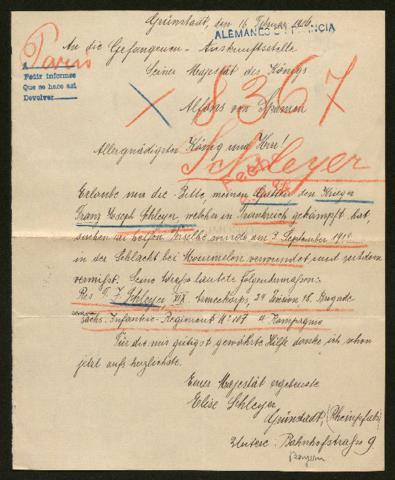 Grünstadt, den 16. Februar 1916.
ALEMANES FRANCIA
An die Gefangenen-Auskunftsstelle
Paris
A
Pedir informes
Que se hace asi
Devolver
Seiner Majestät des Königs
Alfons von Spanien
X 8367
Allergnädigster König und Herr!
Schleyer
Erlaube mir die Bitte, meinen Gatten den Krieger
Franz Joseph Schleyer, welcher in Frankreich gekämpft hat,
suchen zu helfen. Derselbe wurde am 9. September 1914
in der Schlacht bei Mourmelon verwundet und seitdem
vermißt. Seine Adresse lautete folgendermaßen:
Res. F. J. Schleyer, XIX. Armeekorps, 24 Division 48. Brigade
sächs. Infanterie-Regiment No 107 11 Kompagnie
Für die mir gütigst gewährte Hilfe danke ich schon
jetzt aufs herzlichste.
Eurer Majestät ergebenste
Elise Schleyer
Grünstadt, (Rheinpfalz)
Untere Bahnhofstraße 9
Bayern